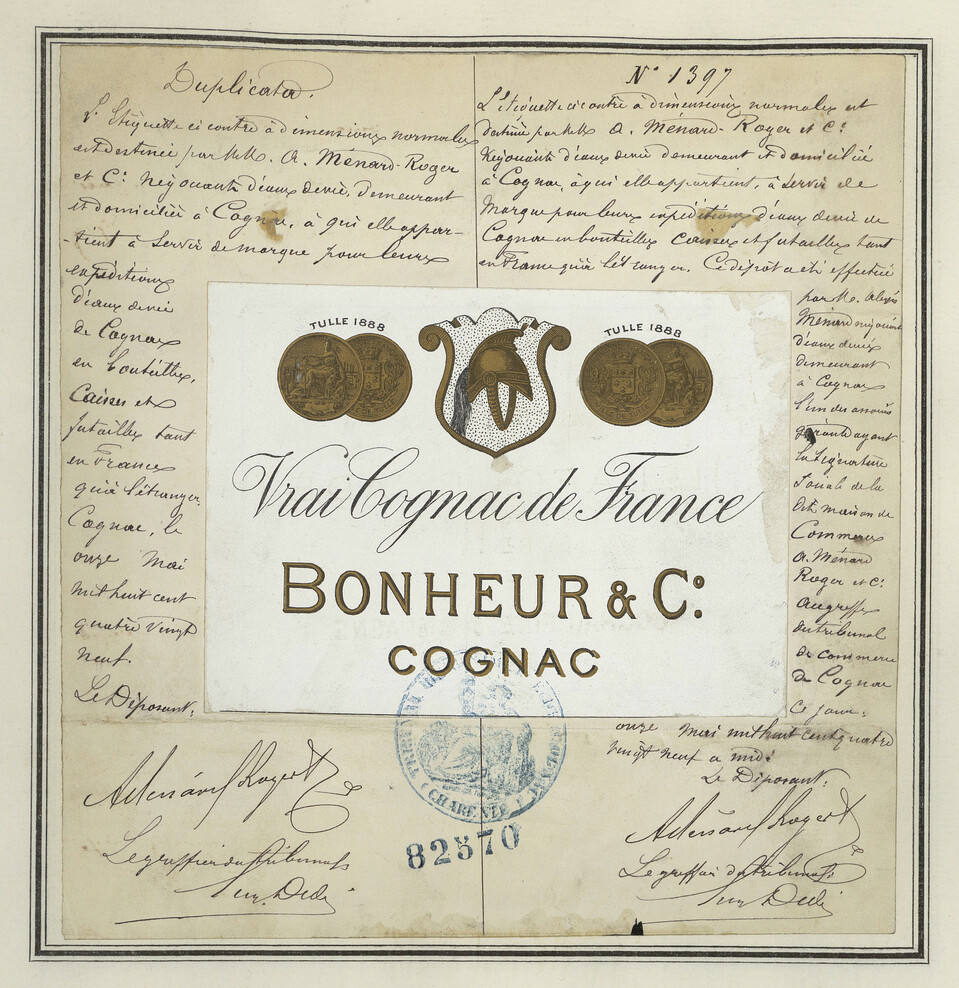 Duplicata.
L'Etiquette ci contre à dimensions normales
est destinée par MM. A. Ménard-Roger
et Cº. Négociants d'eaux de vie, demeurant
et domiciliés à Cognac, à qui elle appar-
-tient à servir de marque pour leurs
expéditions
d'eaux de vie
de Cognac
en bouteilles,
Caisses et
futailles tant
en France
qu'à l'étranger.
Cognac, le
onze Mai
mil huit cent
quatre vingt
neuf.
Le Déposant,
A Ménard Roger & Cº
Le greffier du tribunal
Nº 1397
L'Etiquette ci contre à dimensions normales est
destinée par MM. A. Ménard-Roger et Cº.
Négociants d'eaux de vie demeurant et domiciliés
à Cognac, à qui elle appartient, à servir de
Marque pour leurs expéditions d'eaux de vie de
Cognac en bouteilles caisses et futailles tant
en France qu'à l'étranger. Ce dépôt a été effectué
par M. Alexis
Ménard négociant
d'eaux de vie
demeurant
à Cognac
l'un des associés
gérants ayant
la signature
sociale de la
dite maison de
Commerce
A. Ménard
Roger et Cº.
au greffe
du tribunal
de commerce
de Cognac
ce jour,
onze Mai mil huit cent quatre
vingt neuf à midi.
Le Déposant,
A Ménard Roger & Cº
Le greffier du tribunal
TULLE 1888
TULLE 1888
Vrai Cognac de France
BONHEUR & Cº.
COGNAC
TRIBUNAL DE
(CHARENTE)
82570